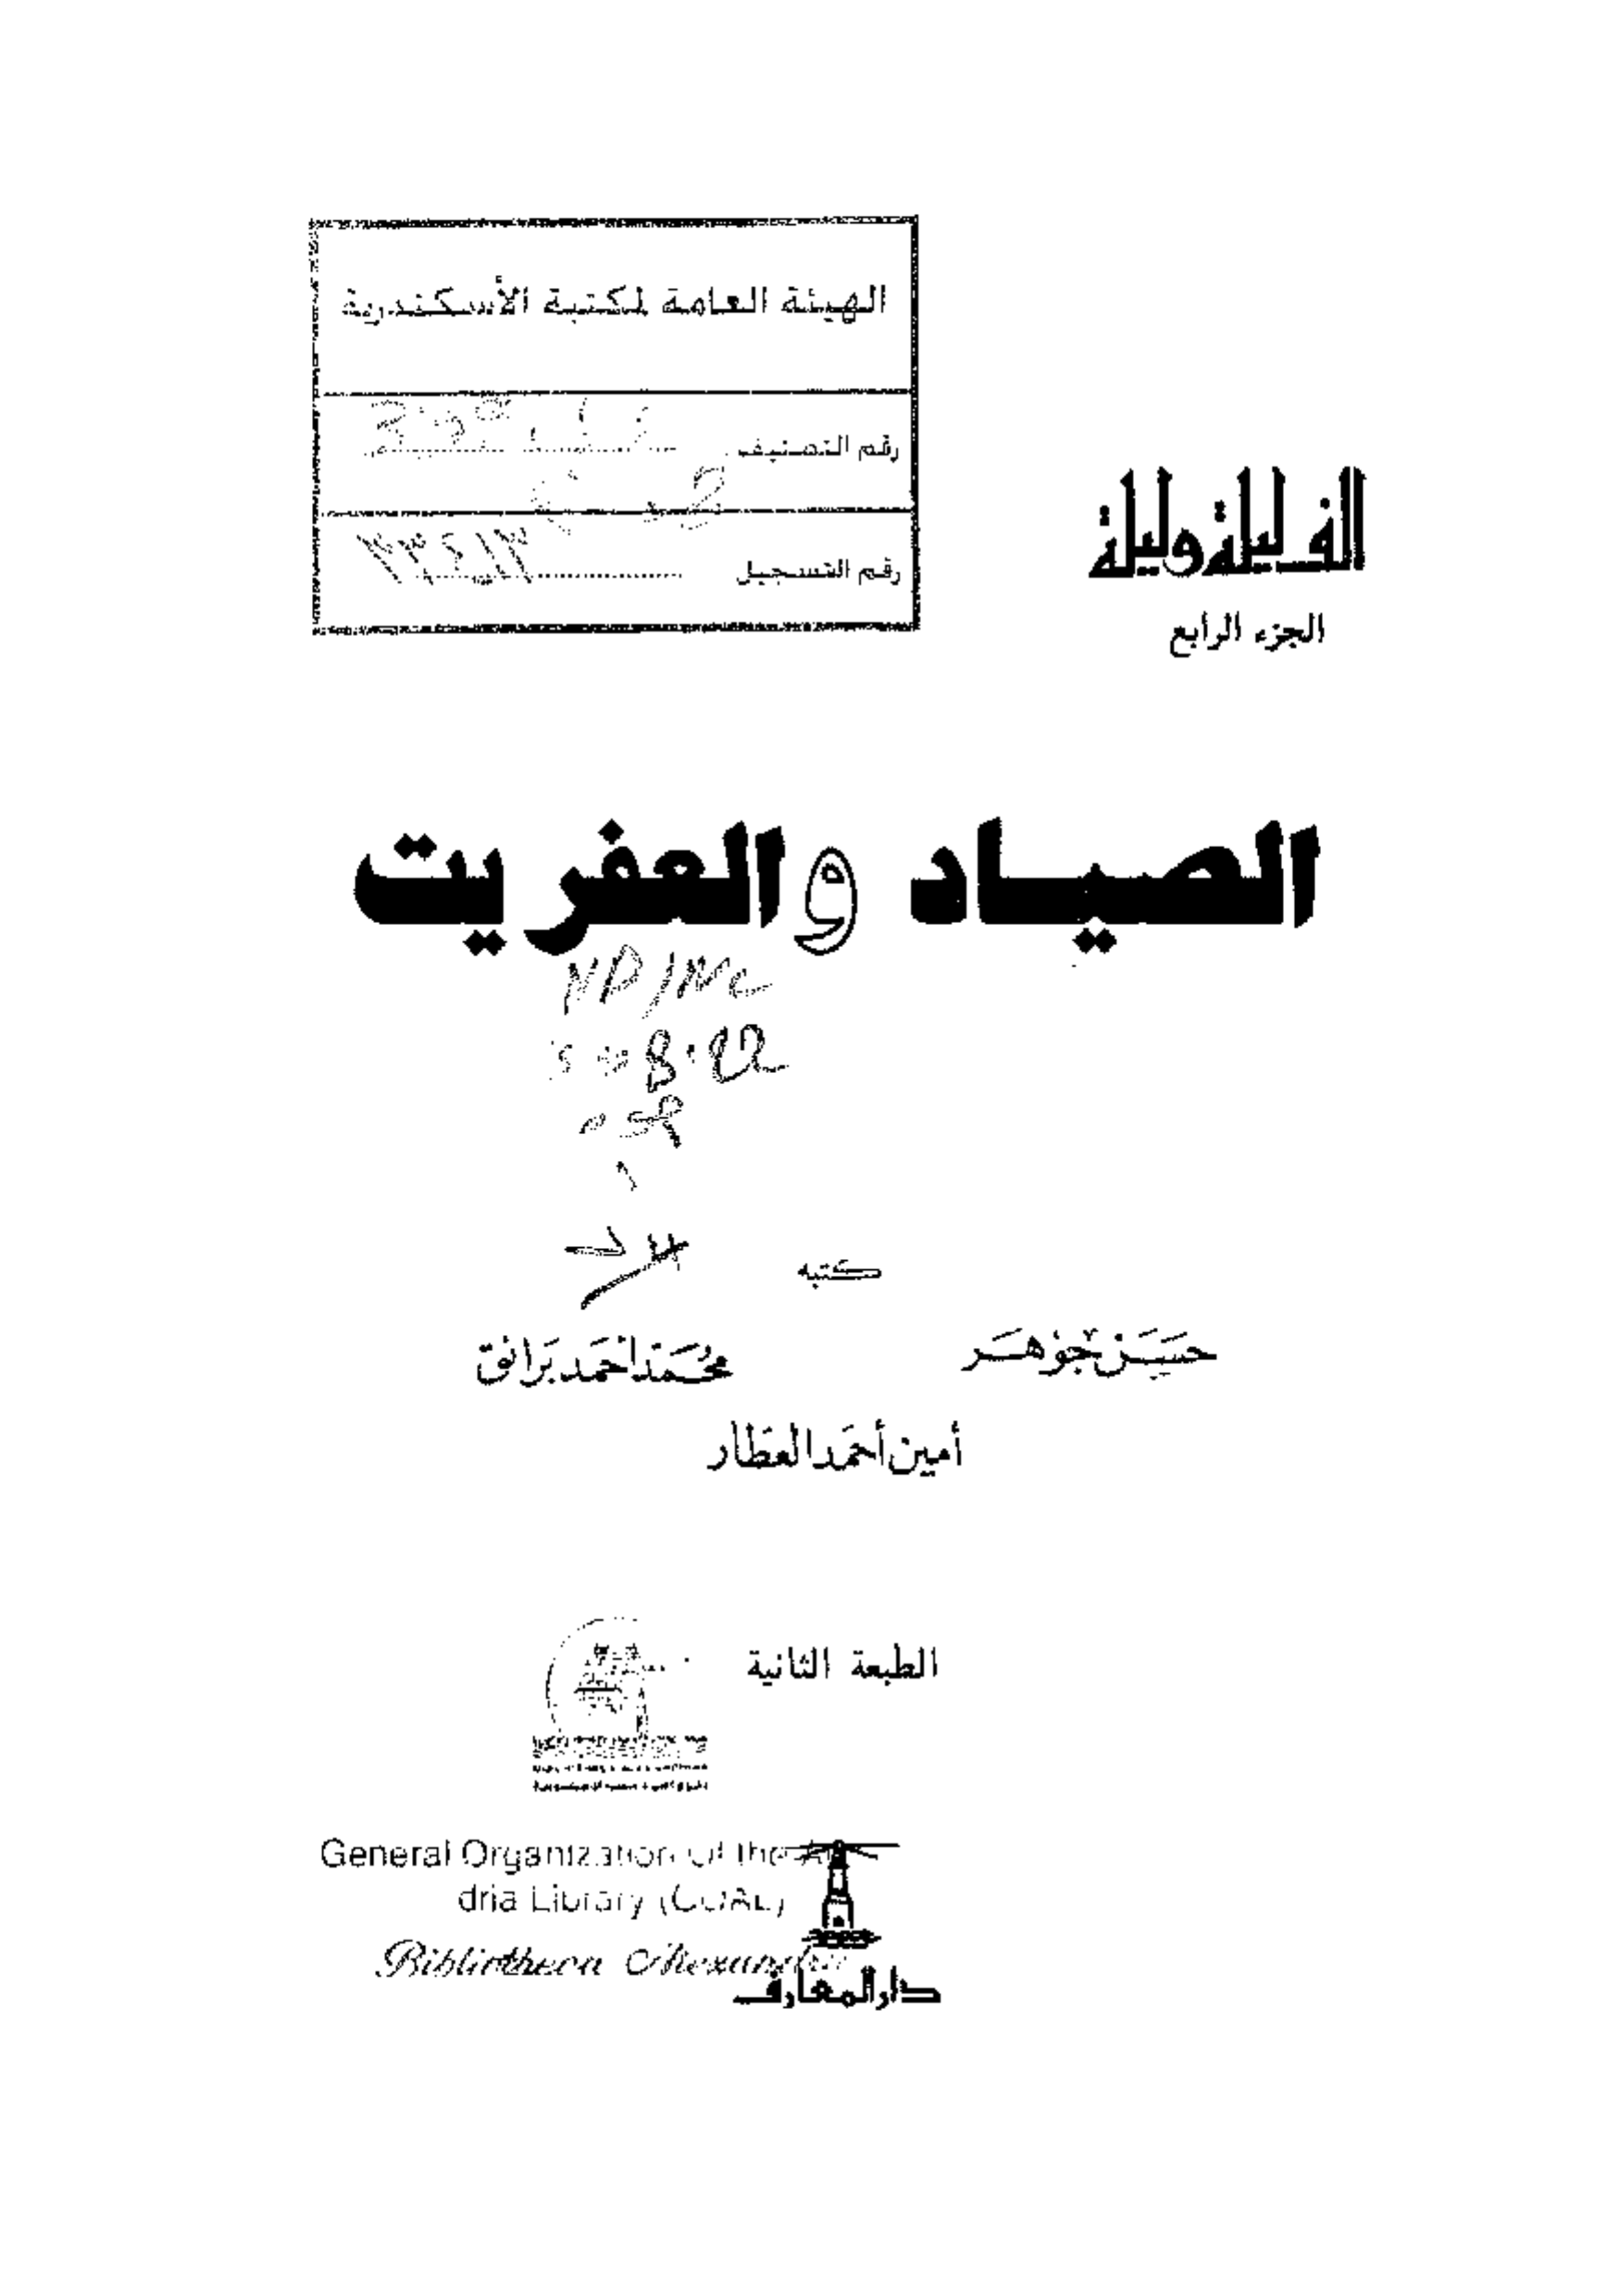 الهيئة العامة لمكتبة الأسكندرية
رقم التصنيف
رقم التسجيل
ألف ليلة وليلة
الجزء الرابع
الصياد والعفريت
كتبه
حَسَن جَوْهَر
محُمَّد أحْمَد بَرَانق
أمين أحمَد العَطار
الطبعة الثانية
General Organization Of the A
dria Library (GOAL)
Bibliotheca Alexandrina
دار المعارف